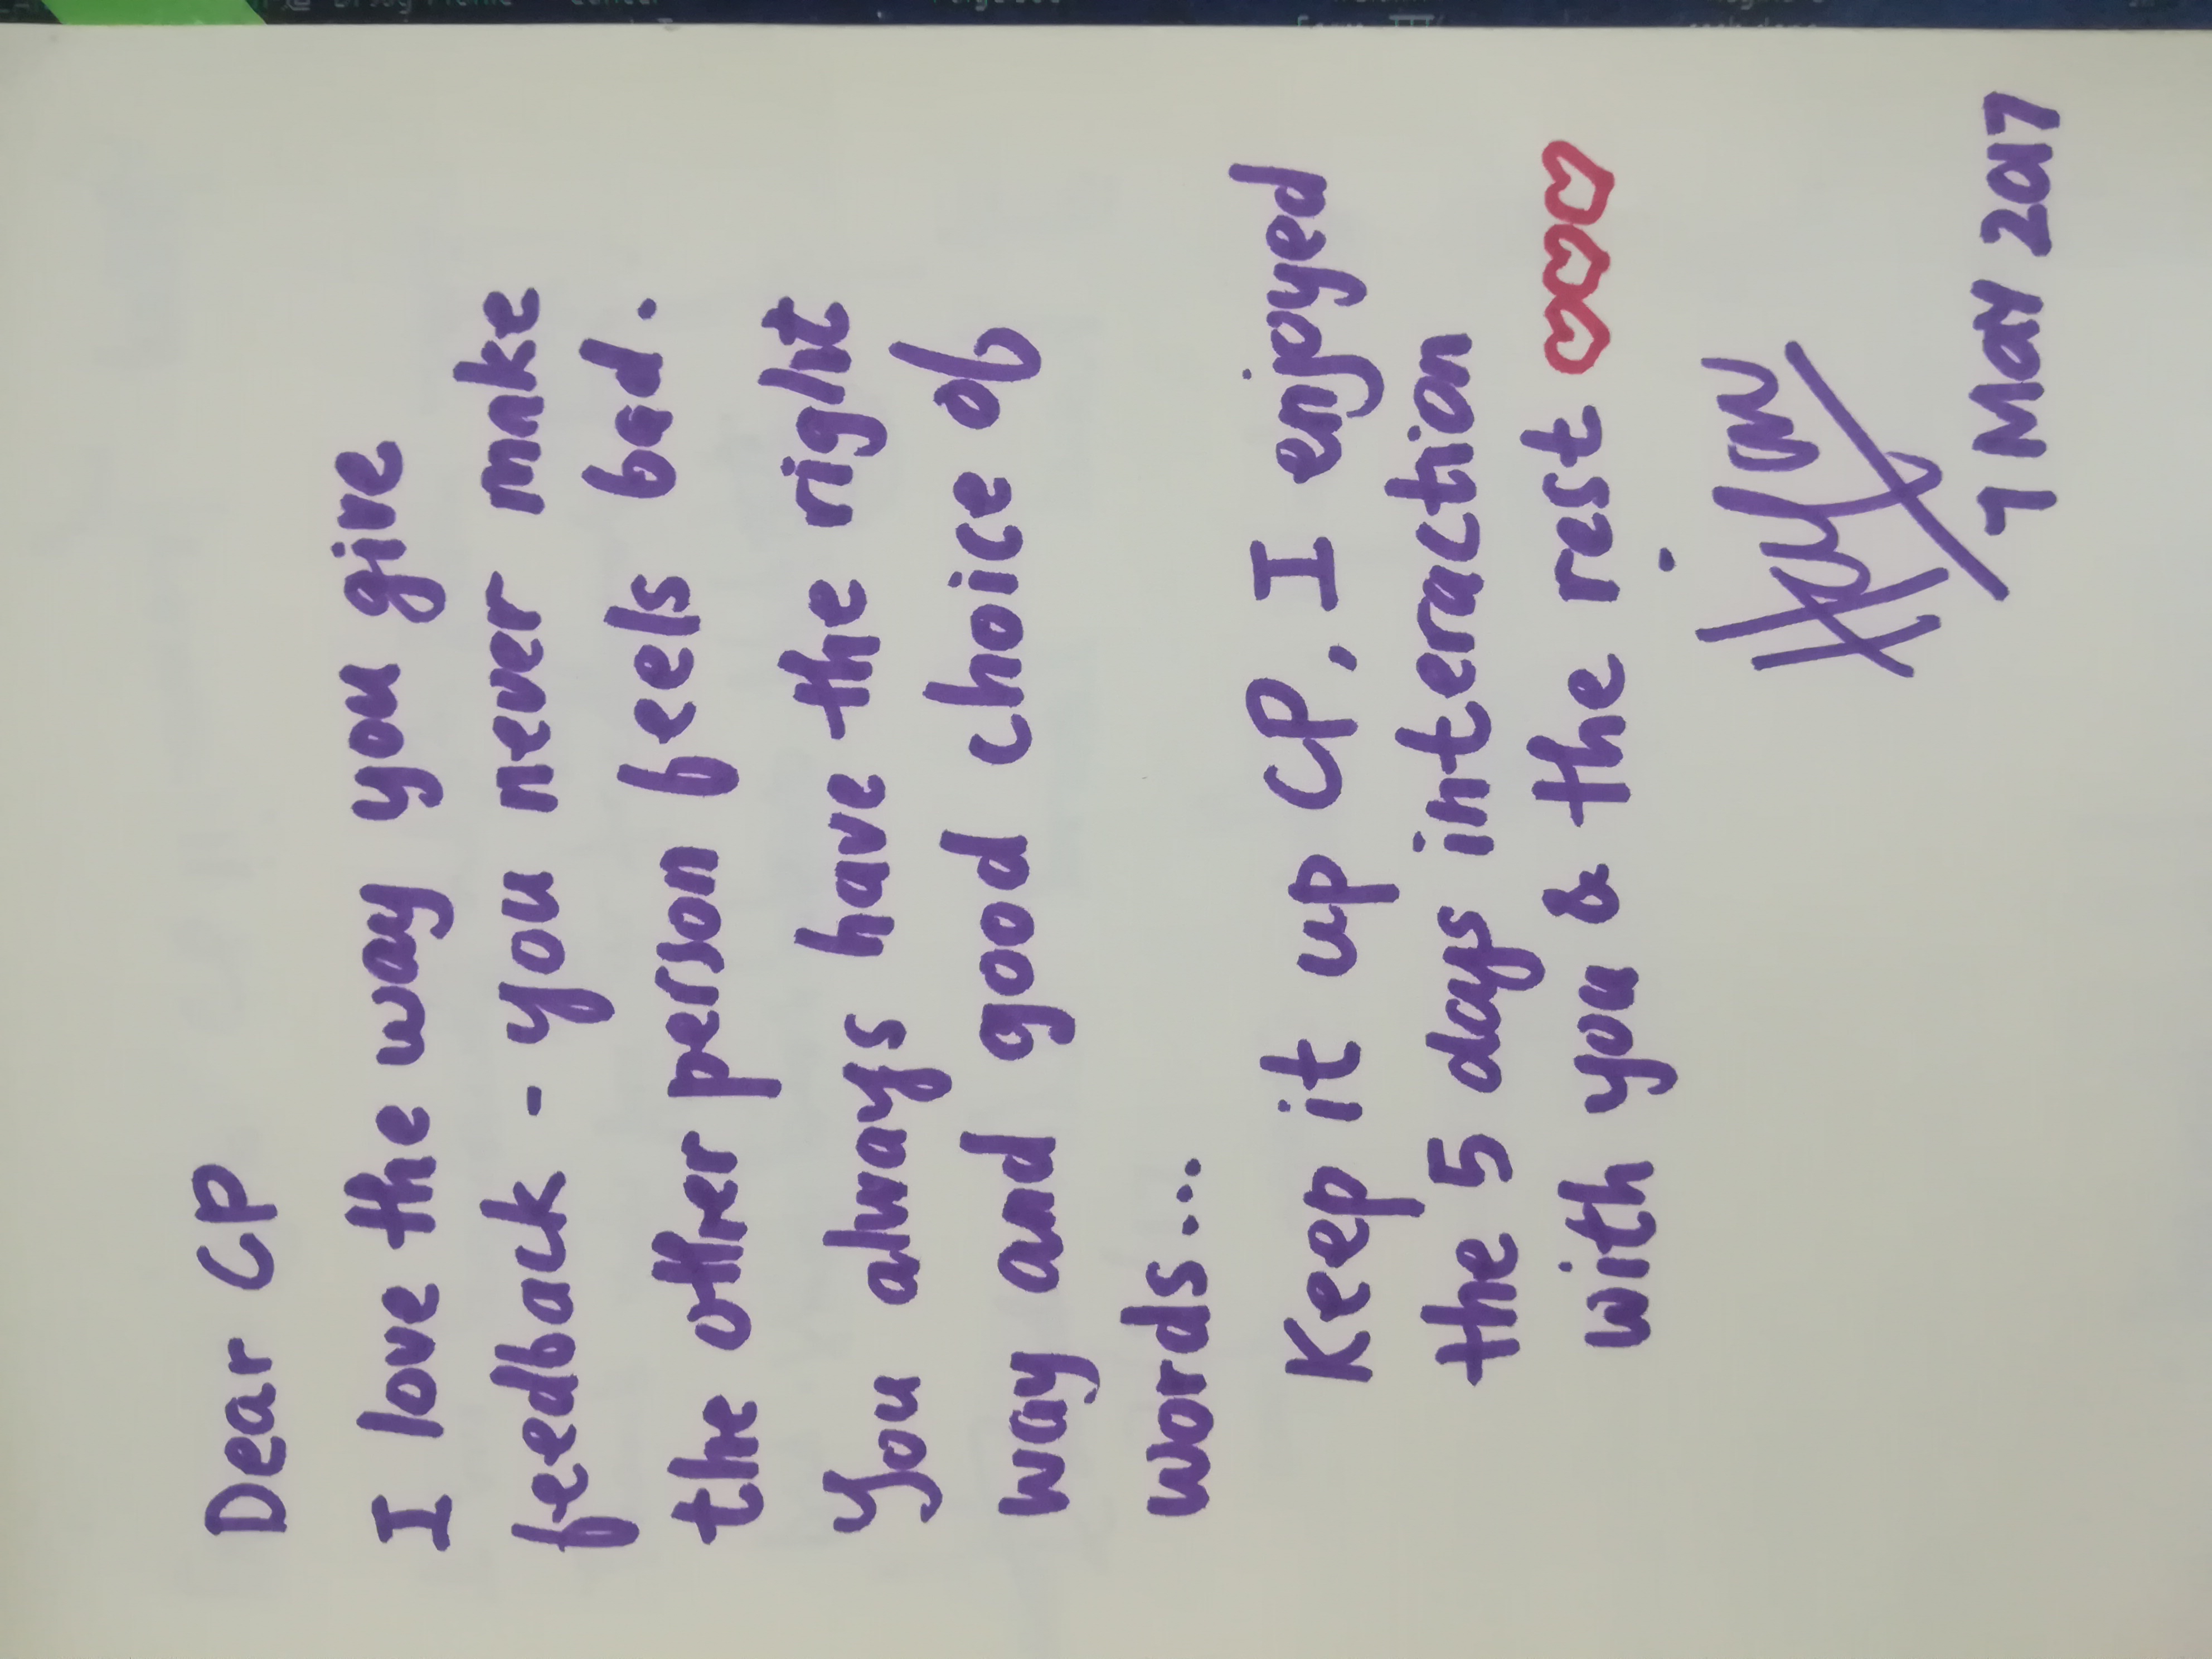 Dear CP
I love the way you give
feedback - you never make
the other person feels bad.
You always have the right
way and good choice of
words...
Keep it up CP, I enjoyed
the 5 days interaction
with you & the rest
.
7 May 2017